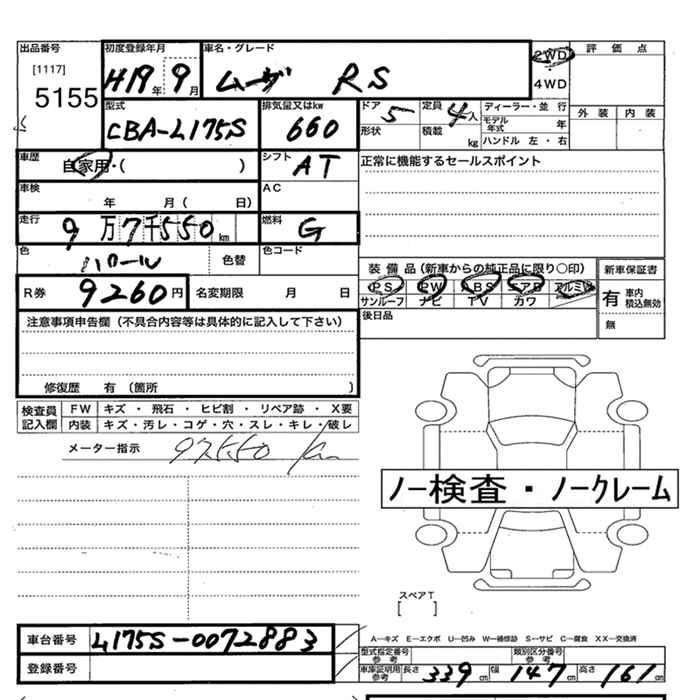 出品番号 初度登録年月 車名・グレード 2WD 評価点
[1117] H19年 9月 ムーヴ RS 4WD
5155 型式 排気量又はkw ドア 5 定員 4人 ディーラー・並行 外装 内装
CBA-L175S 660 形状 積載 kg モデル年式 年
ハンドル 左・右
車歴 自家用・( ) シフト AT 正常に機能するセールスポイント
車検 年 月( 日) AC
走行 9万7千550km 燃料 G
色 パール 色替 色コード
装備品(新車からの純正品に限り○印) 新車保証書
R券 9260円 名変期限 月 日 PS PW ABS エアB アルミW 有 車内積込無効
サンルーフ ナビ TV カワ
注意事項申告欄(不具合内容等は具体的に記入して下さい) 後日品 無
修復歴 有(箇所 )
検査員記入欄 FW キズ ・ 飛石 ・ ヒビ割 ・ リペア跡 ・ X要
内装 キズ・汚レ・コゲ・穴・スレ・キレ・破レ
メーター指示 97550 km
ノー検査・ノークレーム
スペアT
[ ]
車台番号 L175S-0072883
A―キズ E―エクボ U―凹み W―補修跡 S―サビ C―腐食 XX―交換済
登録番号 型式指定番号 参考 類別区分番号 参考
車庫証明用 参考 長さ 339cm 幅 147cm 高さ 161cm